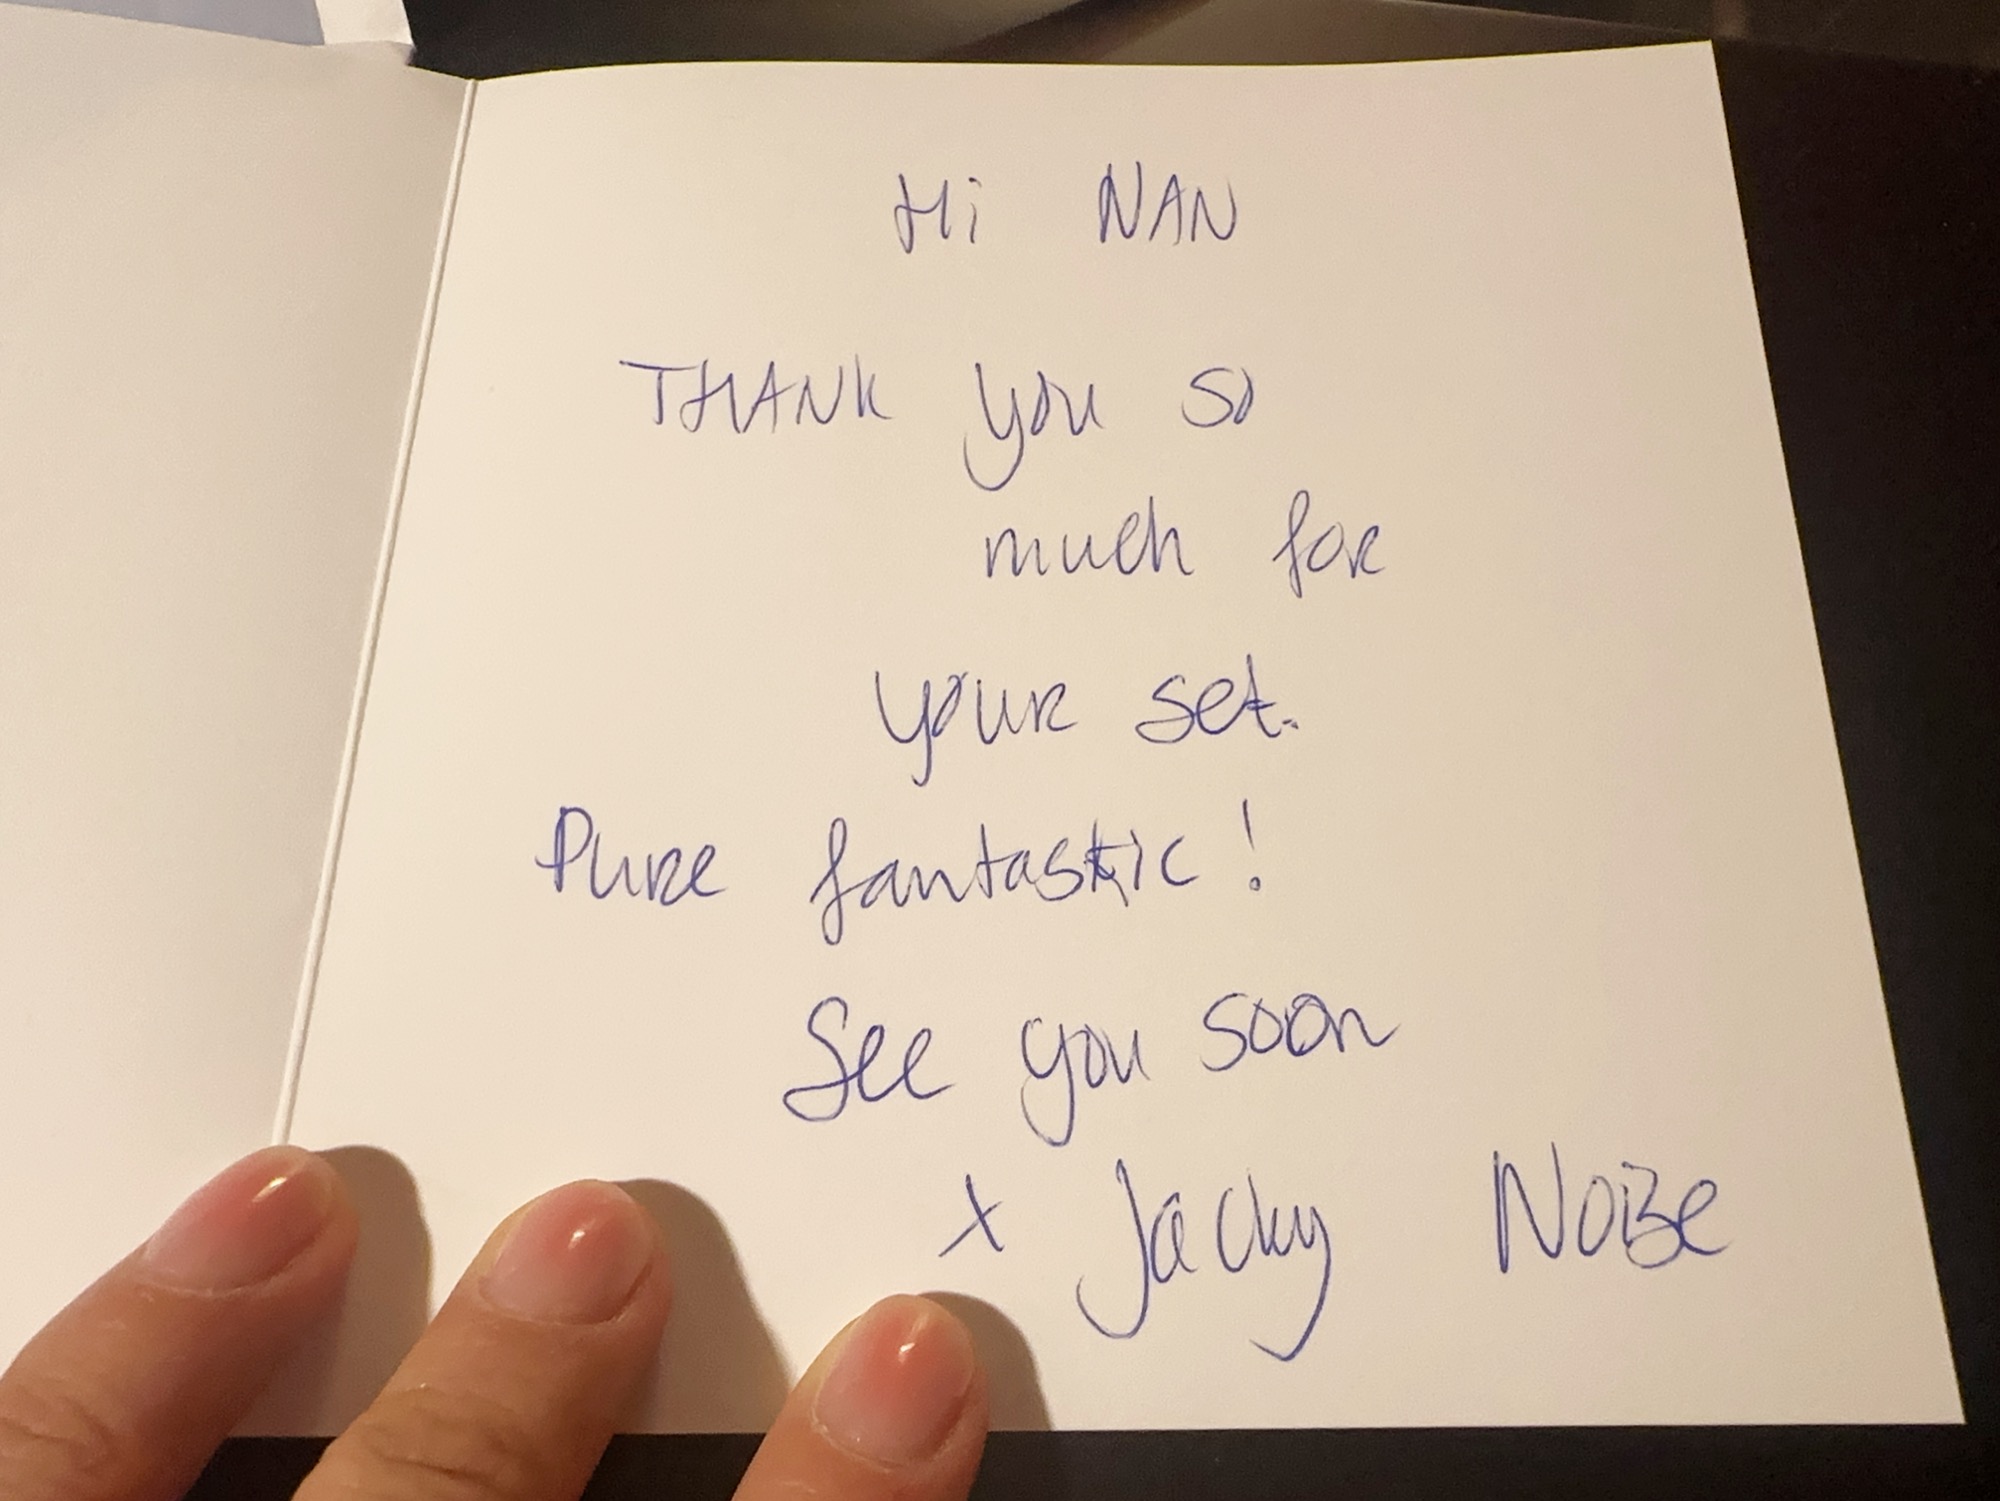 Hi NAN
THANK you so
much for
your set.
Pure fantastic!
See you soon
x Jacky NOISe